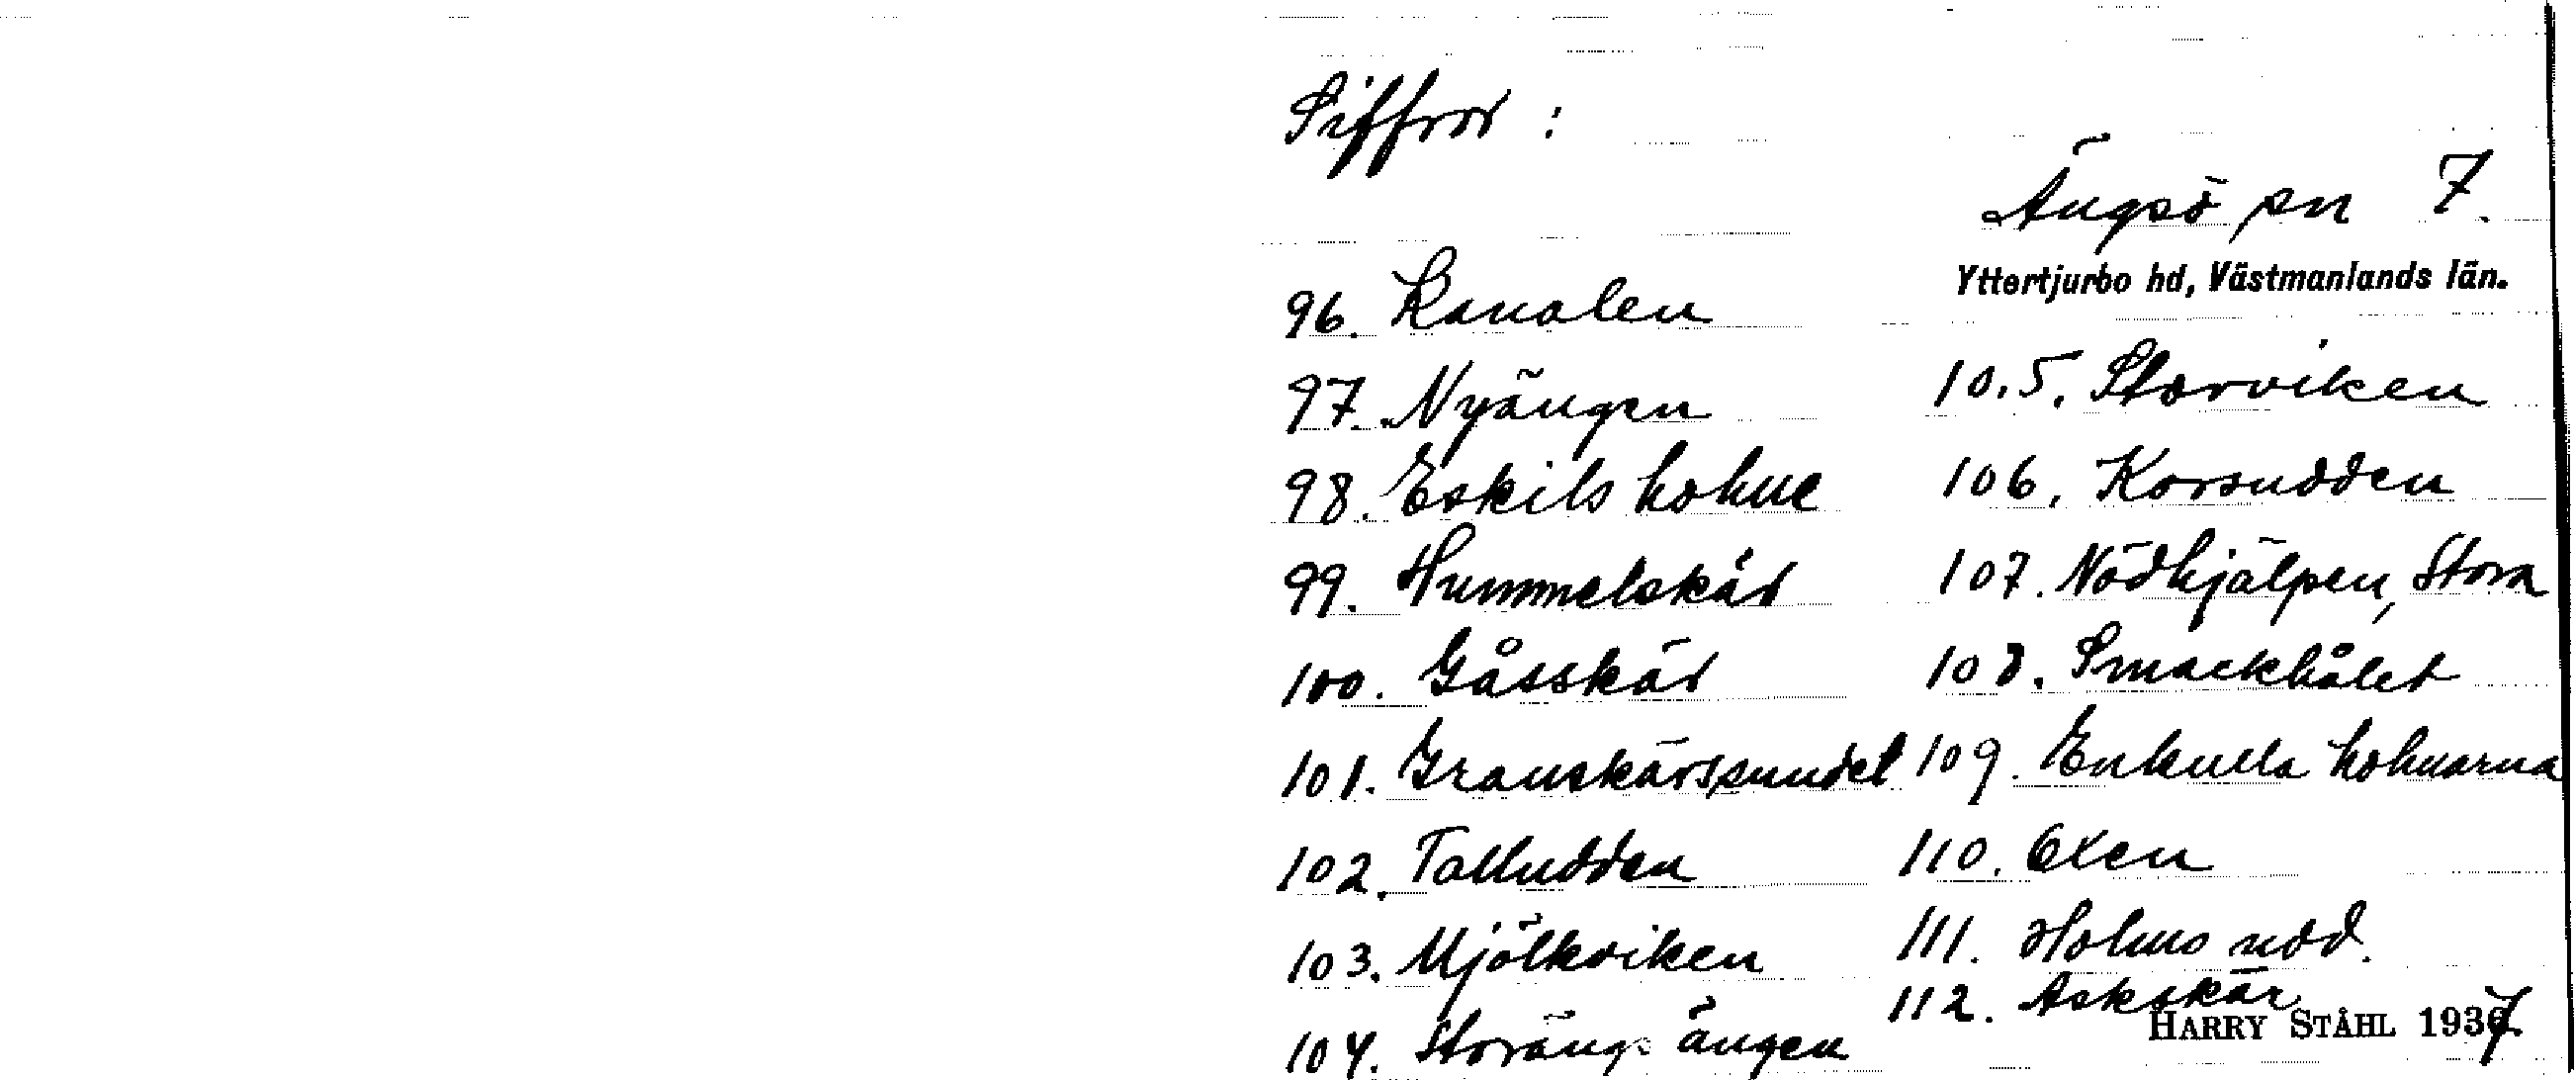 Siffror :
Ängsö sn 7.
Yttertjurbo hd, Västmanlands län.
96. Kanalen
97. Nyängen
98. Eskils holme
99. Hummelskär
100. Gåsskär
101. Granskärssundet
102. Talludden
103. Mjölkviken
104. Storängs ängen
10.5. Storviken
106. Korsudden
107. Nödhjälpen, Stora
108. Smackhålet
109. Enkulla holmarna
110. Oxen
111. Holms udd.
112. Askskär
HARRY STÅHL 1937